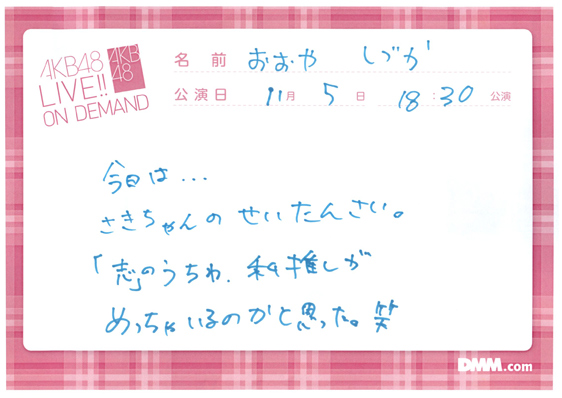 AKB48
LIVE!!
ON DEMAND
AKB
48
名前 おおや しづか
公演日 11月 5日 18:30 公演
今日は...
さきちゃんの せいたんさい。
「志」のうちわ、私推しが
めっちゃいるのかと思った。笑
DMM.com